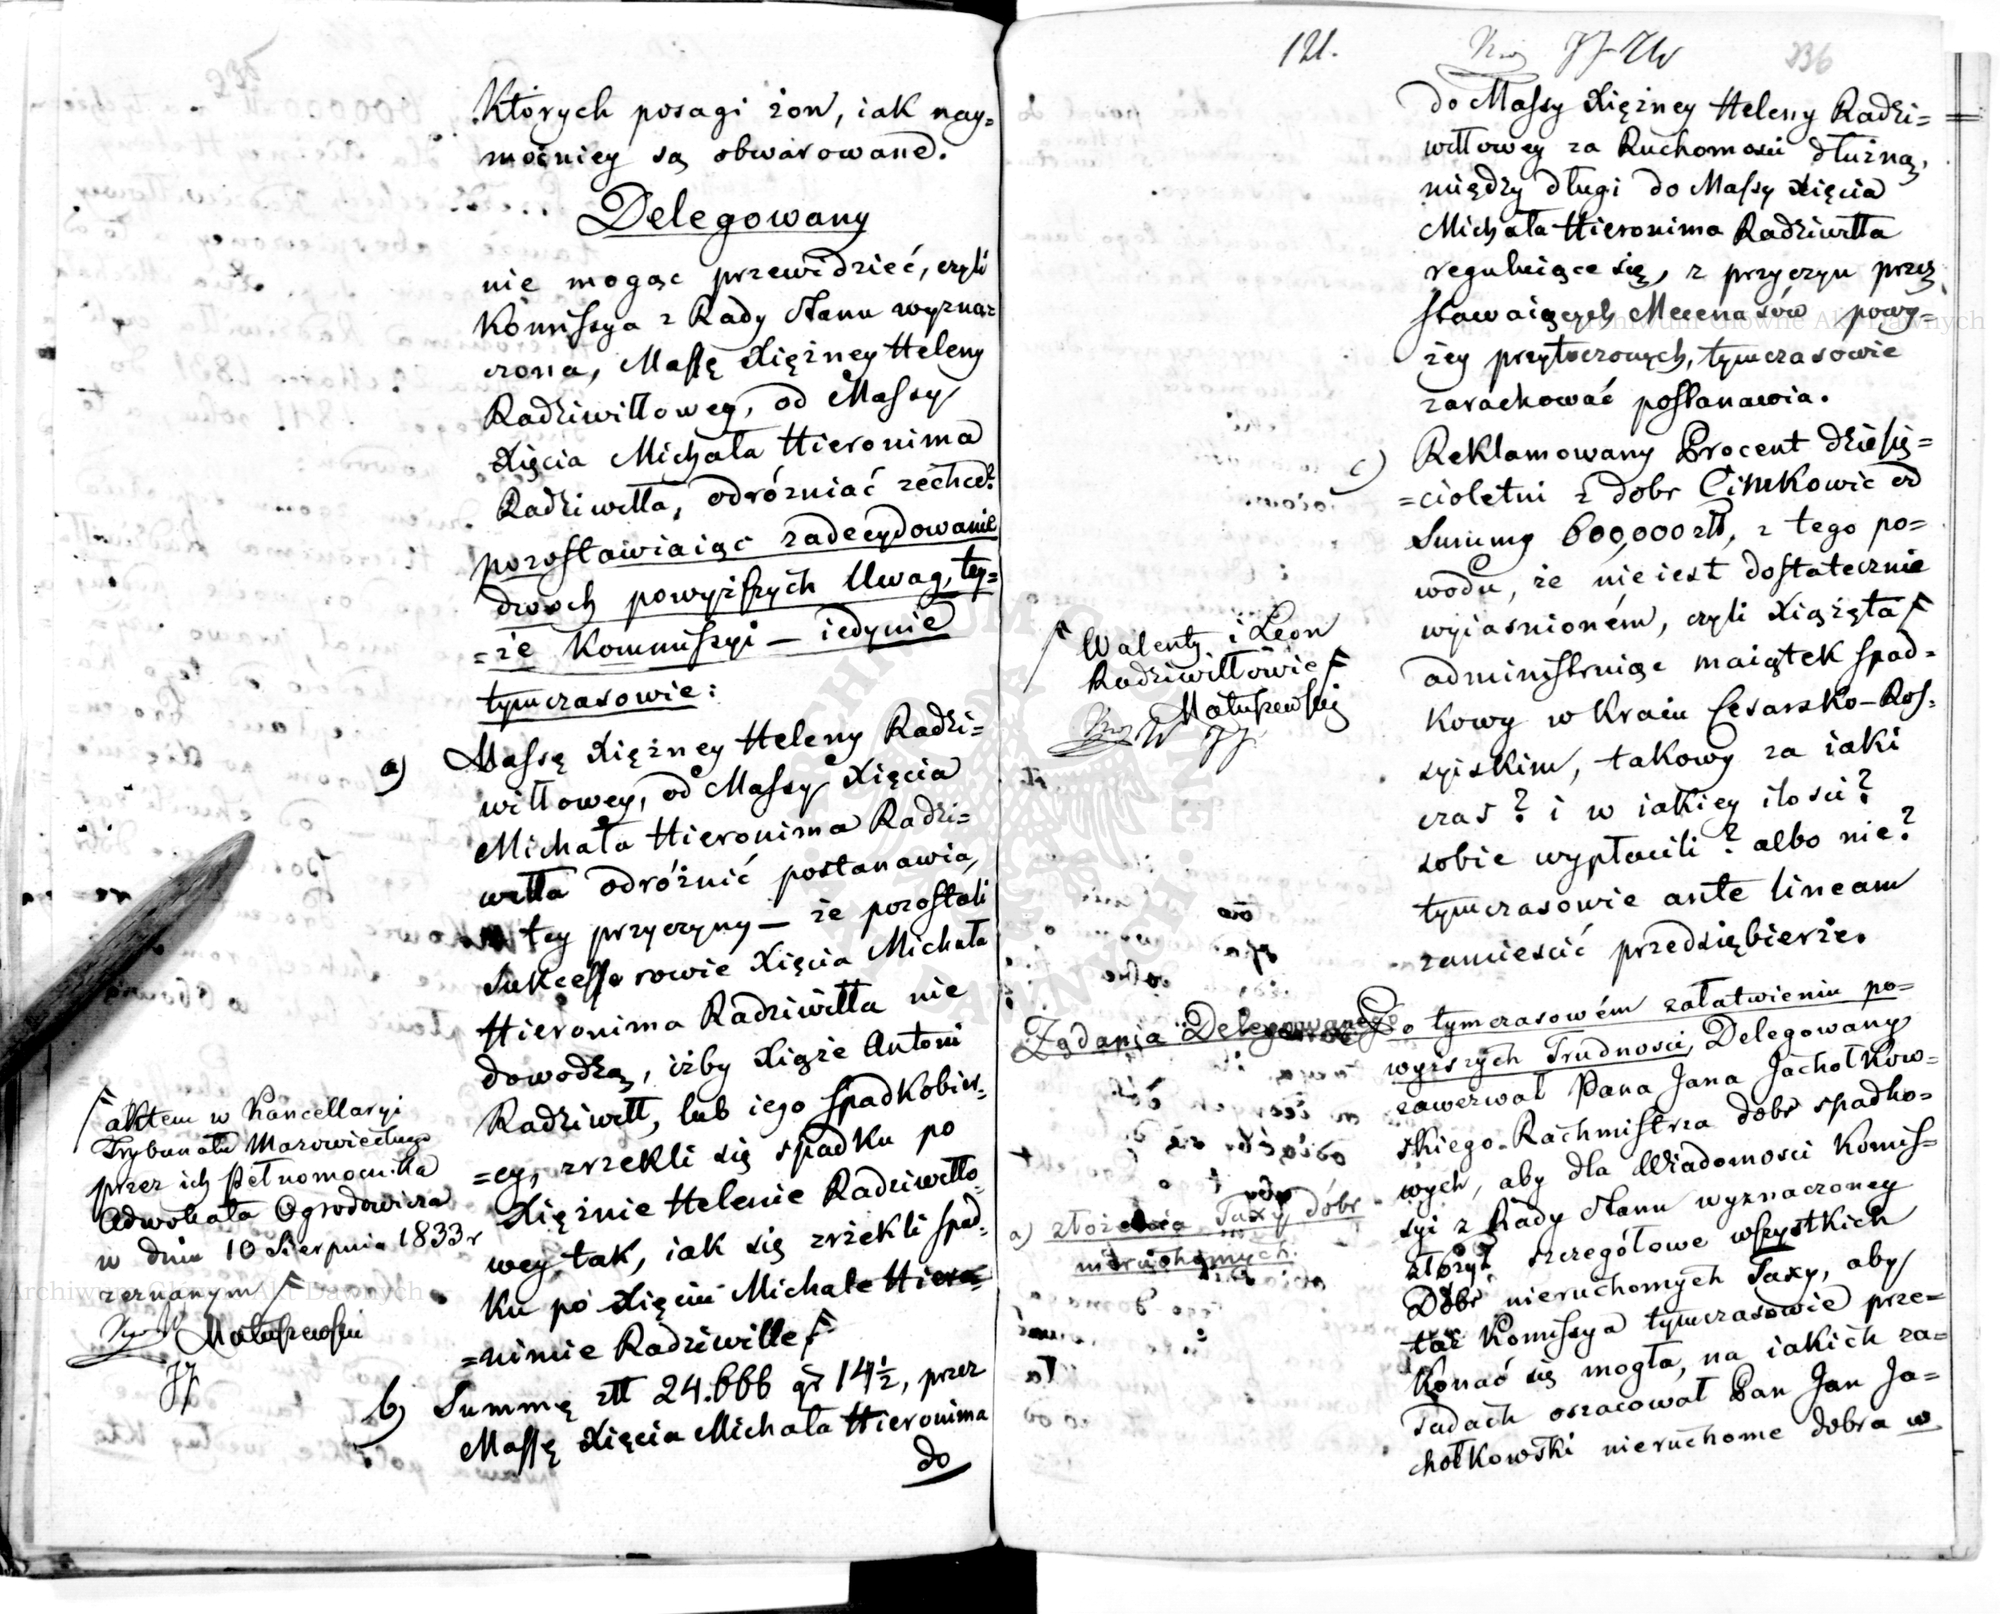 235
Których posagi żon, iak nay=
mocniey są obwarowane.
Delegowany
nie mogąc przewidzieć, czyli
Kommissya z Rady Stanu wyzna=
czona, Massę Xiężney Heleny
Radziwiłłowey, od Massy
Xięcia Michała Hieronima
Radziwiłła, odróżniać zechce?
pozostawiaiąc zadecydowanie
dwóch powyższych Uwag, tey=
=że Kommissyi — iedynie
tymczasowie:
a) Massę Xiężney Heleny Radzi=
wiłłowey, od Massy Xięcia
Michała Hieronima Radzi=
wiłła odróżnić postanawia,
z tey przyczyny — że pozostali
Sukcessorowie Xięcia Michała
Hieronima Radziwiłła nie
dowodzą, iżby Xiąże Antoni
Radziwiłł, lub iego Spadkobier=
=cy, zrzekli się spadku po
Xiężnie Helenie Radziwiłło=
wey, tak, iak się zrzekli spad=
ku po Xięciu Michale Hiero=
=nimie Radziwille
aktem w Kancellaryi
Trybunału Mazowieckiego
przez ich Pełnomocnika
Adwokata Ogrodowicza
w dniu 10 Sierpnia 1833 r
zeznanym
Matuszewski
JJ
b) Summę złł 24.666 gr 14½, przez
Massę Xięcia Michała Hieronima
do
121.
JJ
236
do Massy Xiężney Heleny Radzi=
wiłłowey za Ruchomości dłużną,
między długi do Massy Xięcia
Michała Hieronima Radziwiłła
reguluiące się, z przyczyn przez
stawaiących Mecenasów powy=
żey przytoczonych, tymczasowie
zarachować postanawia.
c) Reklamowany Procent dziesię=
=cioletni z dobr Cimkowic od
Summy 600,000 złł, z tego po=
wodu, że nie iest dostatecznie
wyiasnioném, czyli Xiążęta
Walenty i Leon
Radziwiłłowie
Matuszewski
JJ
administruiąc maiątek spad=
kowy w Kraiu Cesarsko-Ros=
syiskim, takowy za iaki
czas? i w iakiey ilości?
sobie wypłacili? albo nie?
tymczasowie ante lineam
zamieścić przedsiębierze.
Żądania Delegowanego
Po tymczasowém załatwieniu po=
wyższych Trudności, Delegowany
zawezwał Pana Jana Jachołkow=
skiego Rachmistrza dobr spadko=
wych, aby dla Wiadomości Komis=
syi z Rady Stanu wyznaczoney
a) złożenia Taxy dóbr
nieruchomych.
złożył szczegółowe wszystkich
Dóbr nieruchomych Taxy, aby
taż Komissya tymczasowie prze=
konać się mogła, na iakich za=
sadach oszacował Pan Jan Ja=
chołkowski nieruchome dobra w
Archiwum Główne Akt Dawnych
Archiwum Główne Akt Dawnych
ARCHIWUM GŁÓWNE AKT DAWNYCH